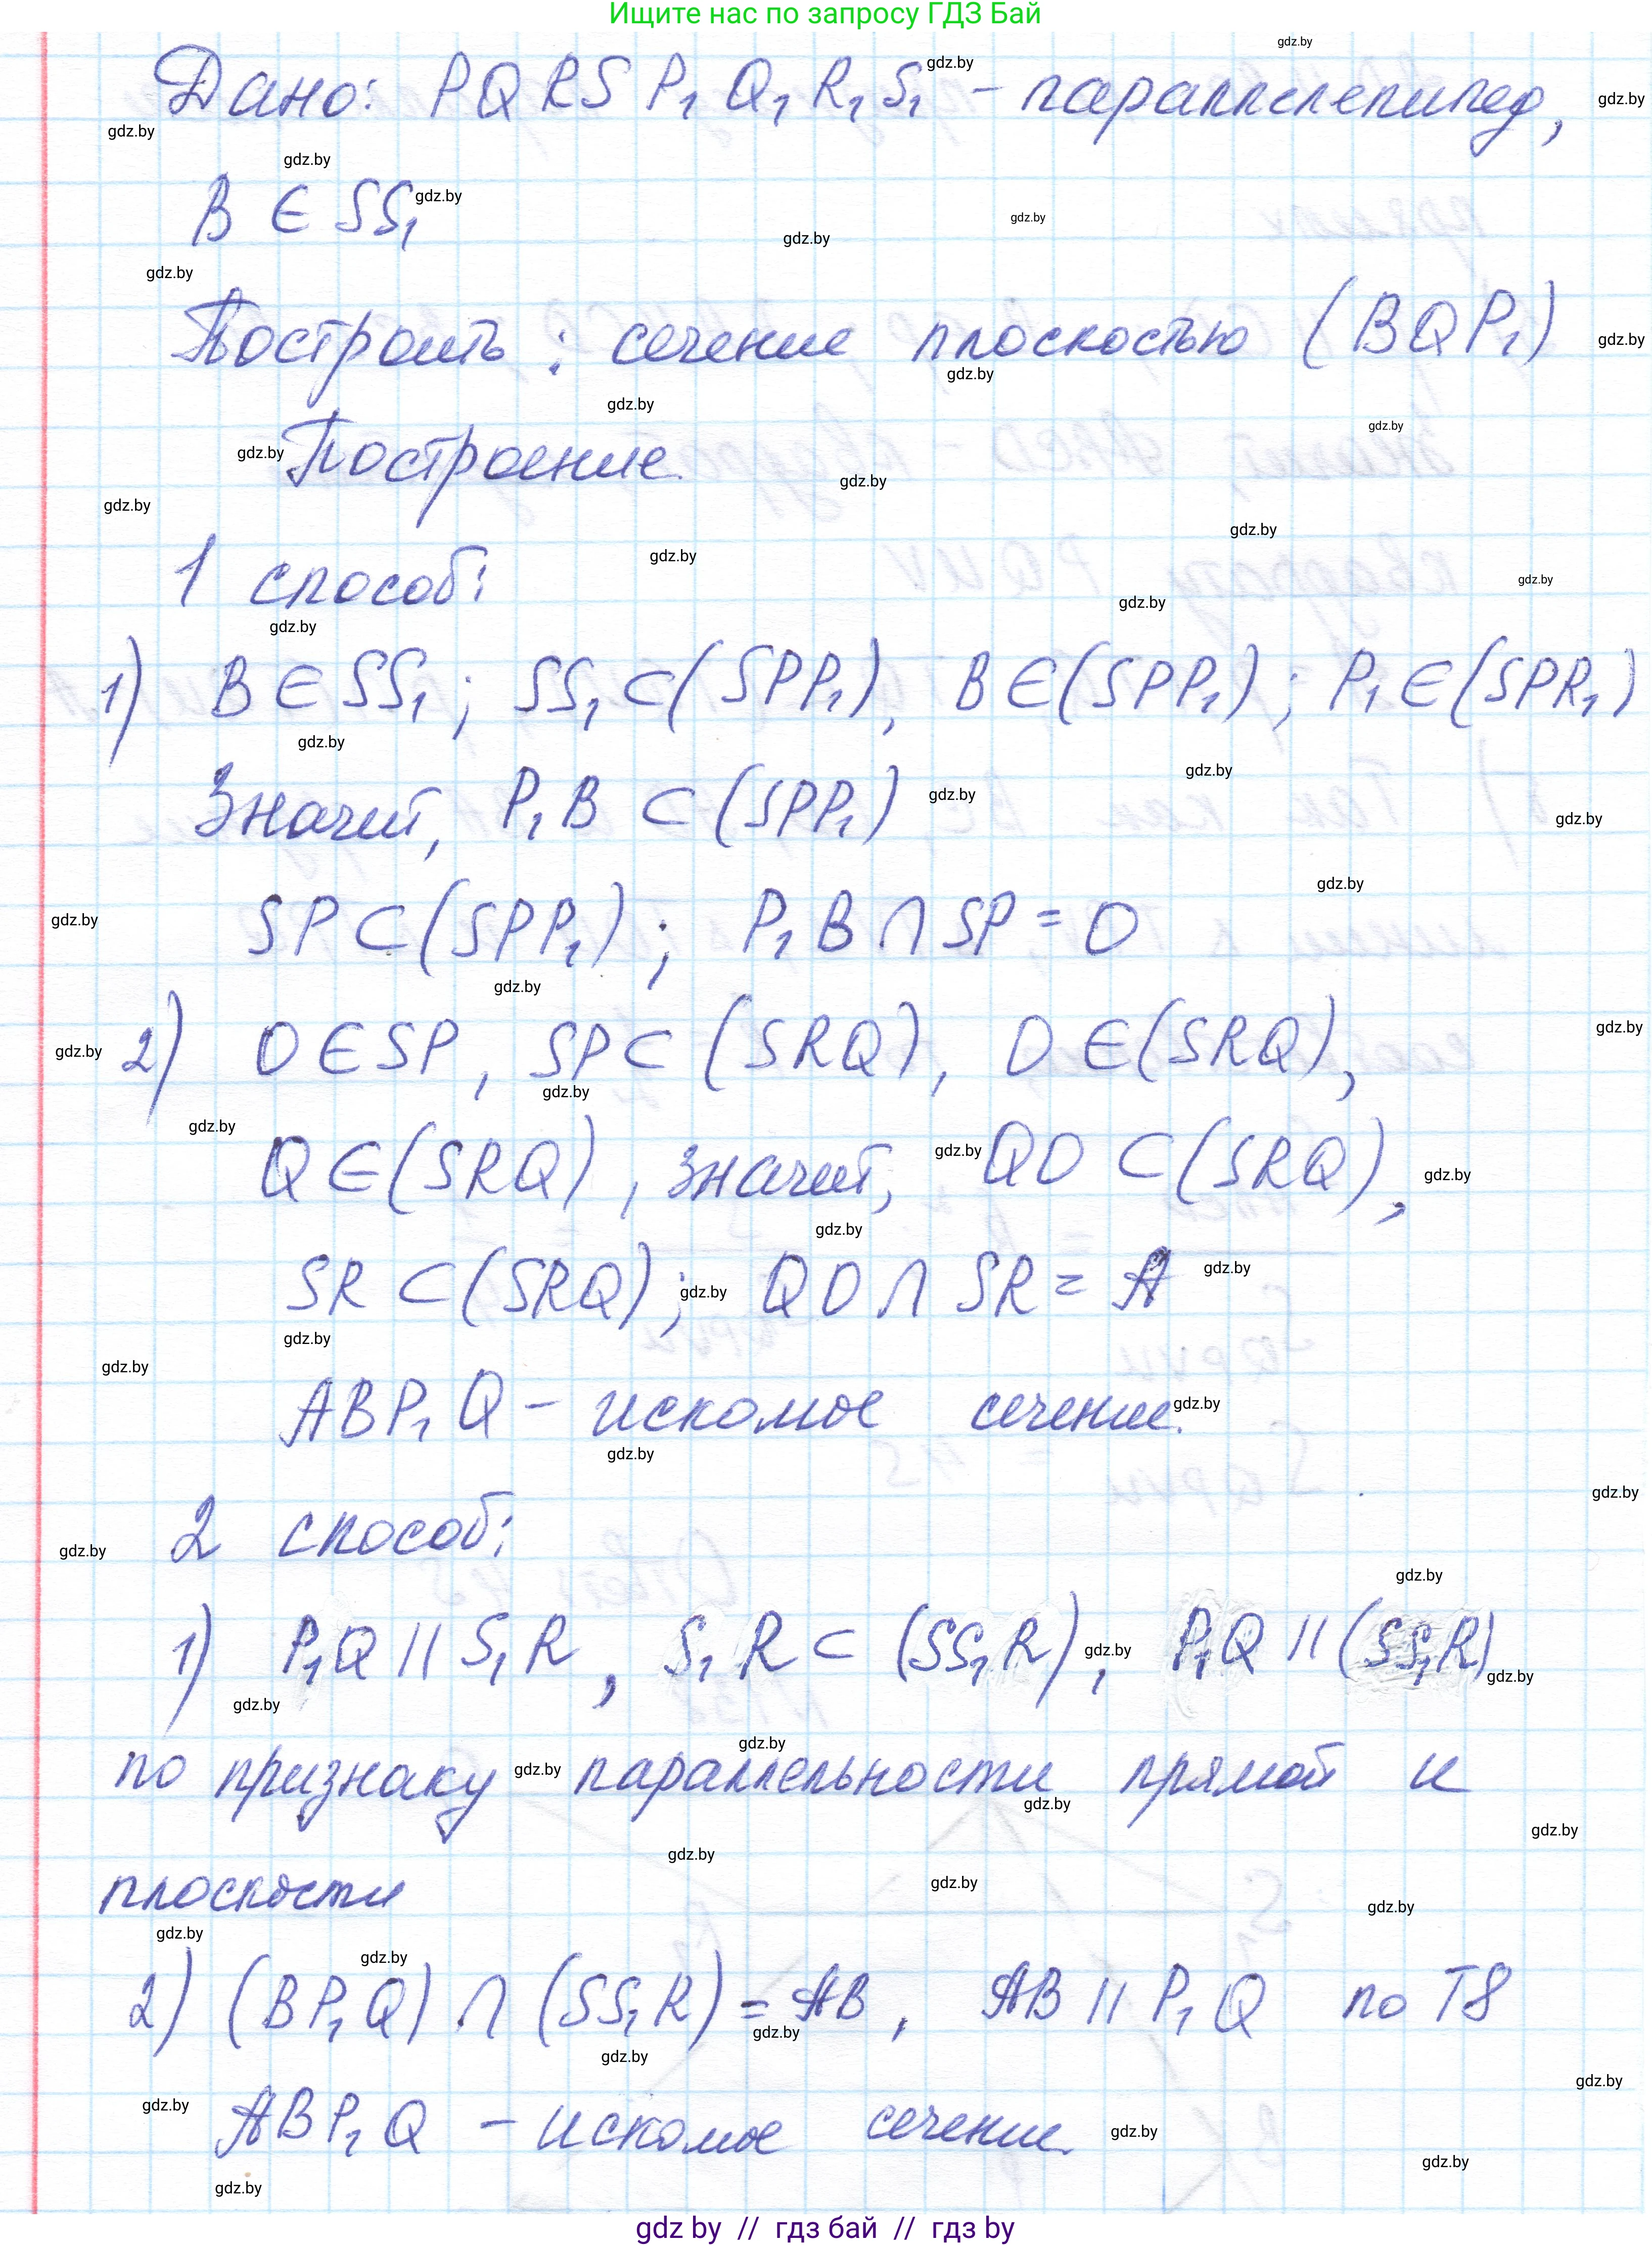 Ищите нас по запросу ГДЗ Бай
Дано: PQRSP₁Q₁R₁S₁ - параллелепипед,
B ∈ SS₁
Построить: сечение плоскостью (BQP₁)
Построение.
1 способ:
1) B ∈ SS₁; SS₁ ⊂ (SPP₁), B ∈ (SPP₁); P₁ ∈ (SPR₁)
Значит, P₁B ⊂ (SPP₁)
SP ⊂ (SPP₁); P₁B ∩ SP = O
2) O ∈ SP, SP ⊂ (SRQ), O ∈ (SRQ),
Q ∈ (SRQ), значит, QO ⊂ (SRQ),
SR ⊂ (SRQ); QO ∩ SR = A
ABP₁Q - искомое сечение.
2 способ:
1) P₁Q || S₁R, S₁R ⊂ (SS₁R), P₁Q || (SS₁R)
по признаку параллельности прямой и
плоскости
2) (BP₁Q) ∩ (SS₁R) = AB, AB || P₁Q по Т8
ABP₁Q - искомое сечение.
gdz by // гдз бай // гдз by